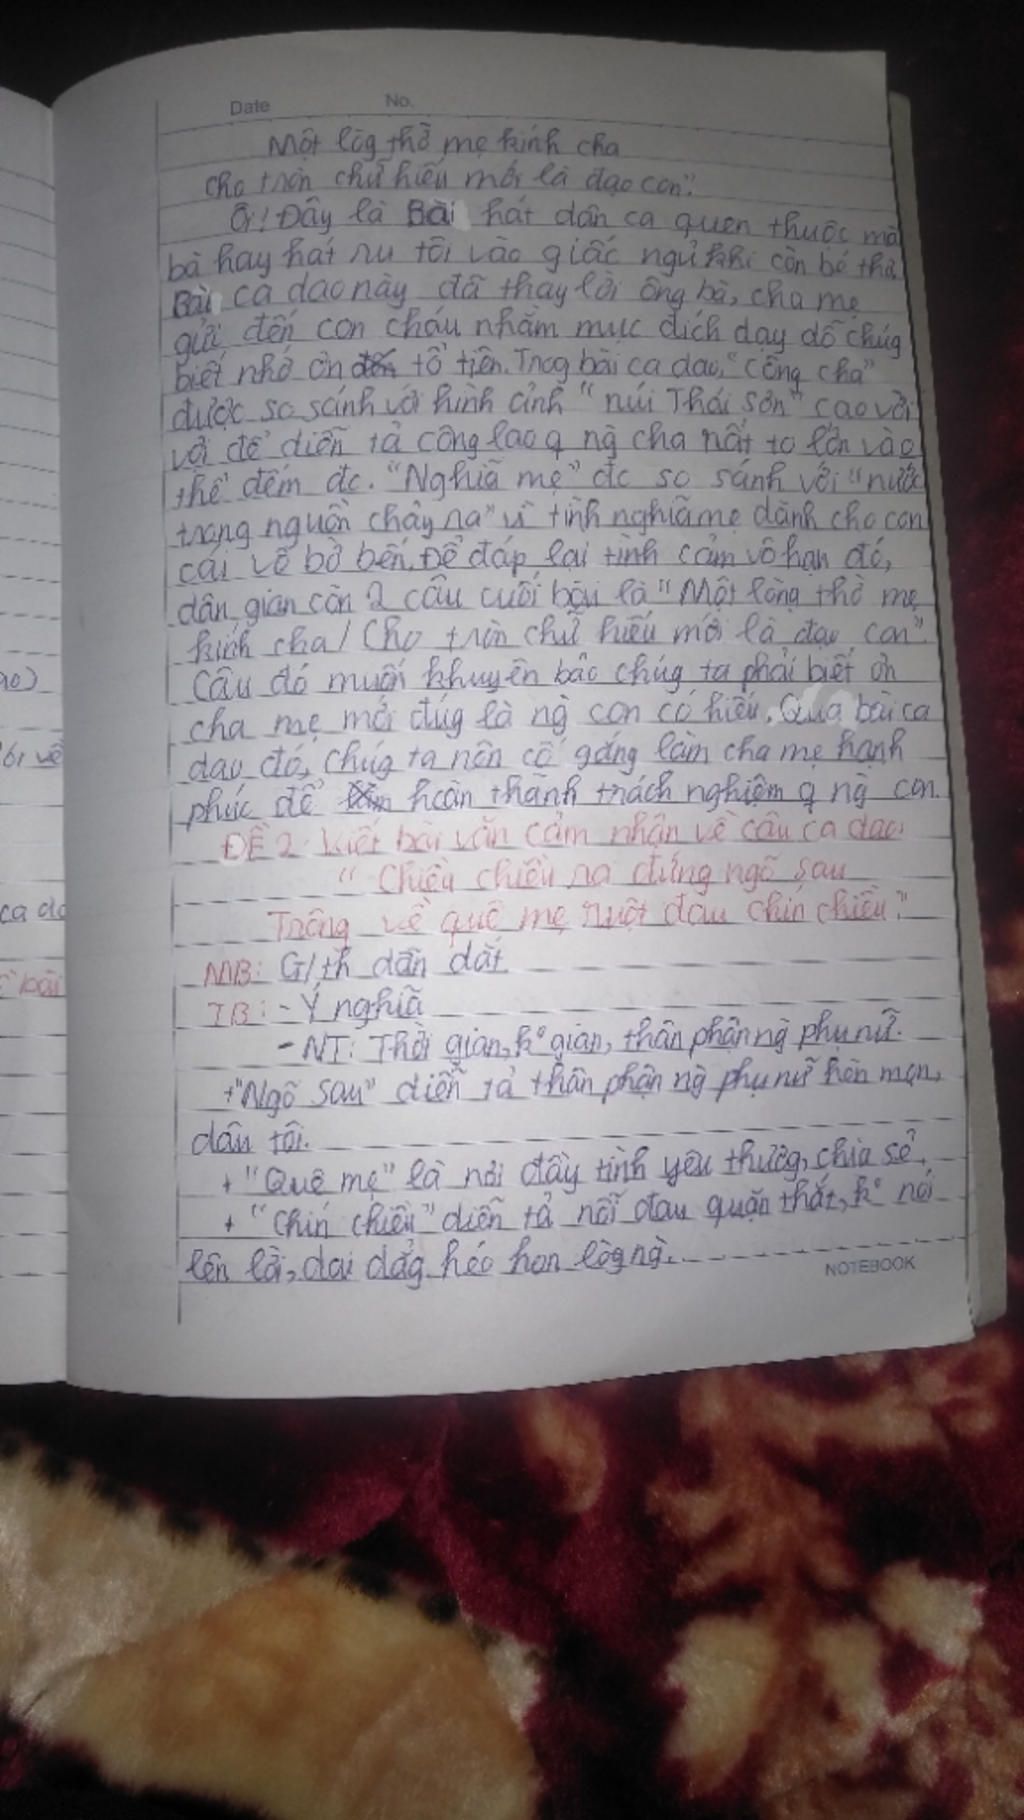 Date No.
Một lòg thờ mẹ kính cha
Cho tròn chữ hiếu mới là đạo con".
Ơi! Đây là Bài hát dân ca quen thuộc mà
bà hay hát ru tôi vào giấc ngủ khi còn bé thơ.
Bài ca dao này đã thay lời ông bà, cha mẹ
gửi đến con cháu nhằm mục đích dạy dỗ chúg
biết nhớ ơn tổ tiên. Trog bài ca dao, "công cha"
được so sánh với hình ảnh "núi Thái Sơn" cao vời
vợi để diễn tả công lao q ng cha rất to lớn vào
thể đếm đc. "Nghĩa mẹ" đc so sánh với "nước
trong nguồn chảy ra" vì tình nghĩa mẹ dành cho con
cái vô bờ bến. Để đáp lại tình cảm vô hạn đó,
dân gian còn 2 câu cuối bài là "Một lòng thờ mẹ
kính cha / Cho tròn chữ hiếu mới là đạo con".
Câu đó muốn khuyên bảo chúg ta phải biết ơn
cha mẹ mới đúg là ng con có hiếu. Qua bài ca
dao đó, chúg ta nên cố gắng làm cha mẹ hạnh
phúc để hoàn thành trách nghiệm q ng con.
ĐỀ 2: Viết bài văn cảm nhận về câu ca dao:
" Chiều chiều ra đứng ngõ sau
Trông về quê mẹ ruột đau chín chiều."
MB: G/th dẫn dắt
TB: - Ý nghĩa
- NT: Thời gian, k° gian, thân phận ng phụ nữ.
+ "Ngõ sau" diễn tả thân phận ng phụ nữ hèn mọn,
dâu tôi.
+ "Quê mẹ" là nơi đầy tình yêu thươg, chia sẻ.
+ "Chín chiều" diễn tả nỗi đau quặn thắt, k° nói
lên lời, dai dẳg héo hon lòg ng.
NOTEBOOK
ao)
ói về
ca da
bài